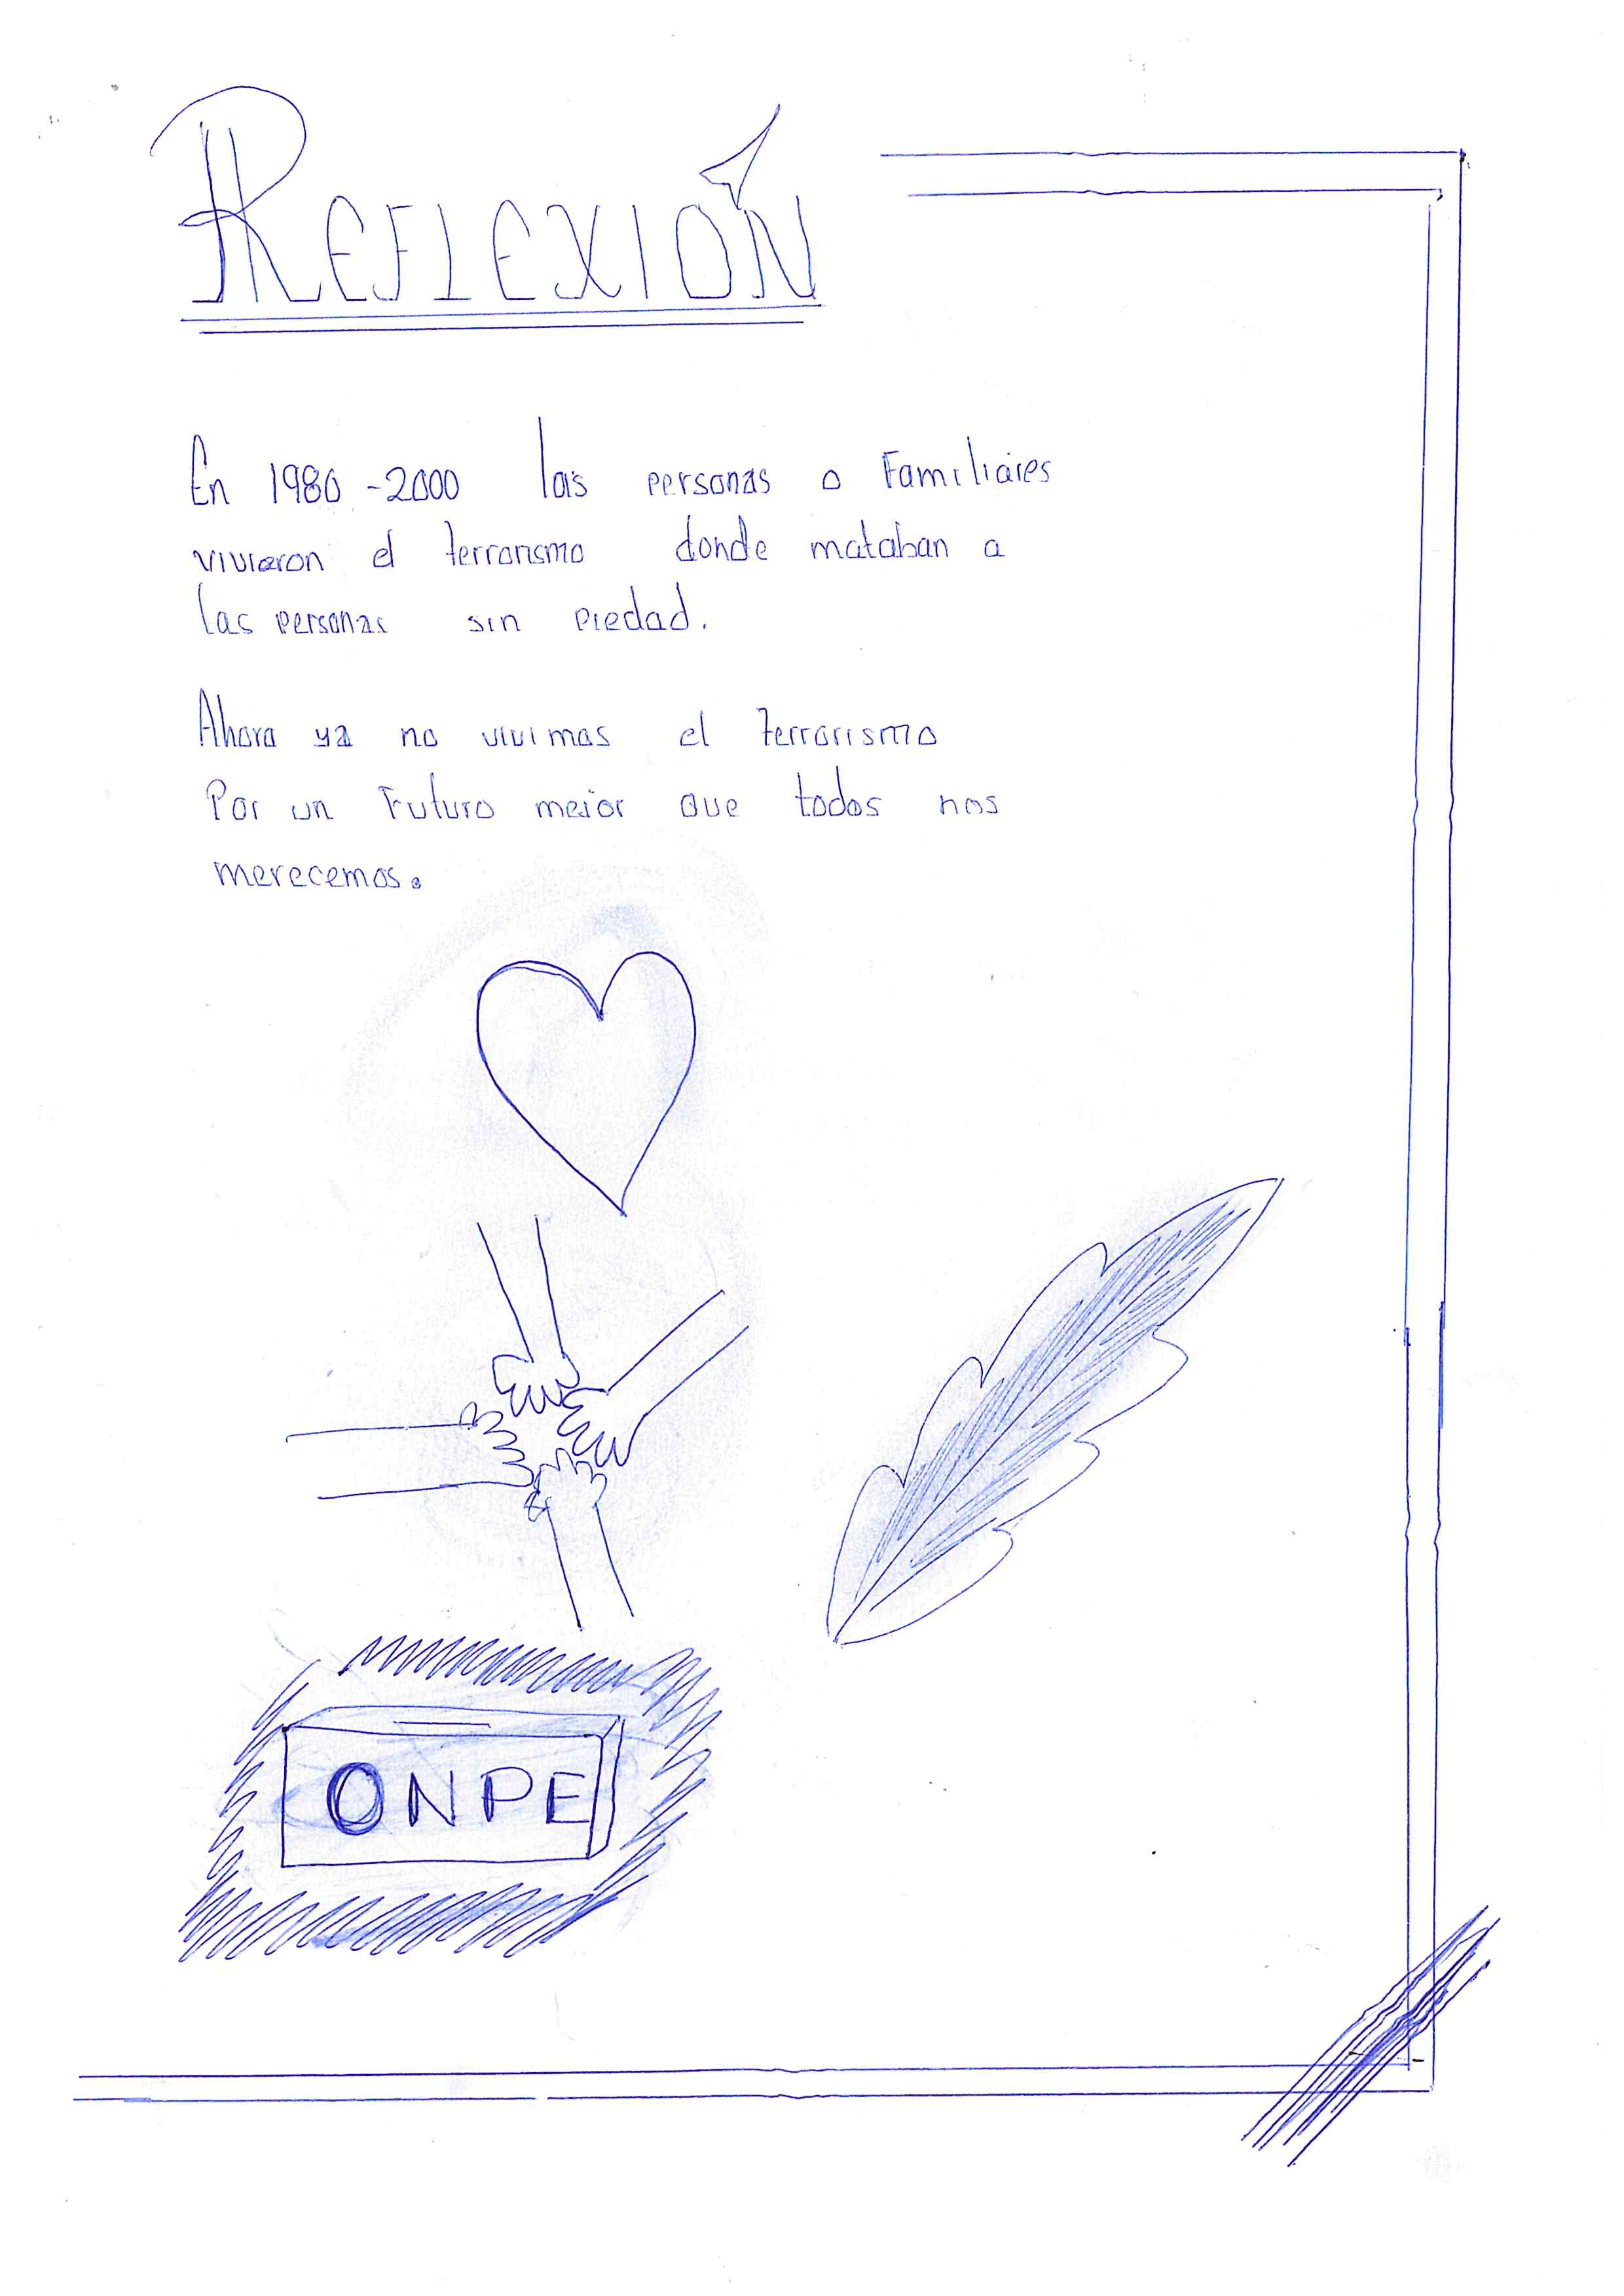 REFLEXIÓN
En 1980 - 2000 las personas o Familiares
vivieron el terrorismo donde mataban a
las personas sin piedad.
Ahora ya no vivimos el terrorismo
Por un Futuro mejor que todos nos
merecemos.
ONPE